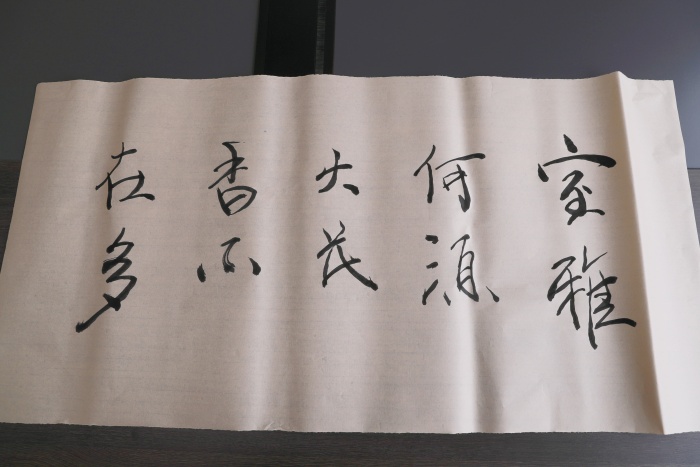 室雅
何须
大花
香不
在多